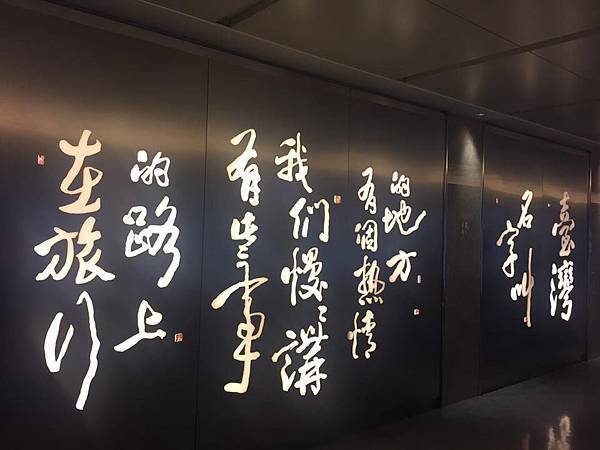 在旅行
的路上
有些事
我们慢〻講
有個热情
的地方
名字叫
臺灣